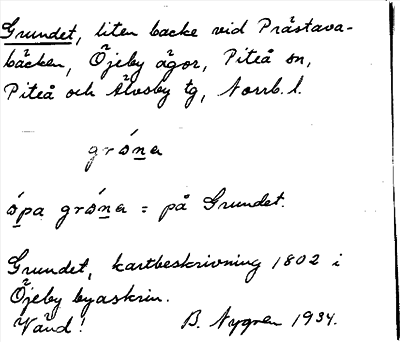 Grundet, liten backe vid Prästava-
bäcken, Öjeby ägor, Piteå sn,
Piteå och Älvsby tg, Norrb. l.
grón̲a
óp̲a grón̲a = på Grundet.
Grundet, kartbeskrivning 1802 i
Öjeby byaskrin.
Vänd! B. Nygren 1934.